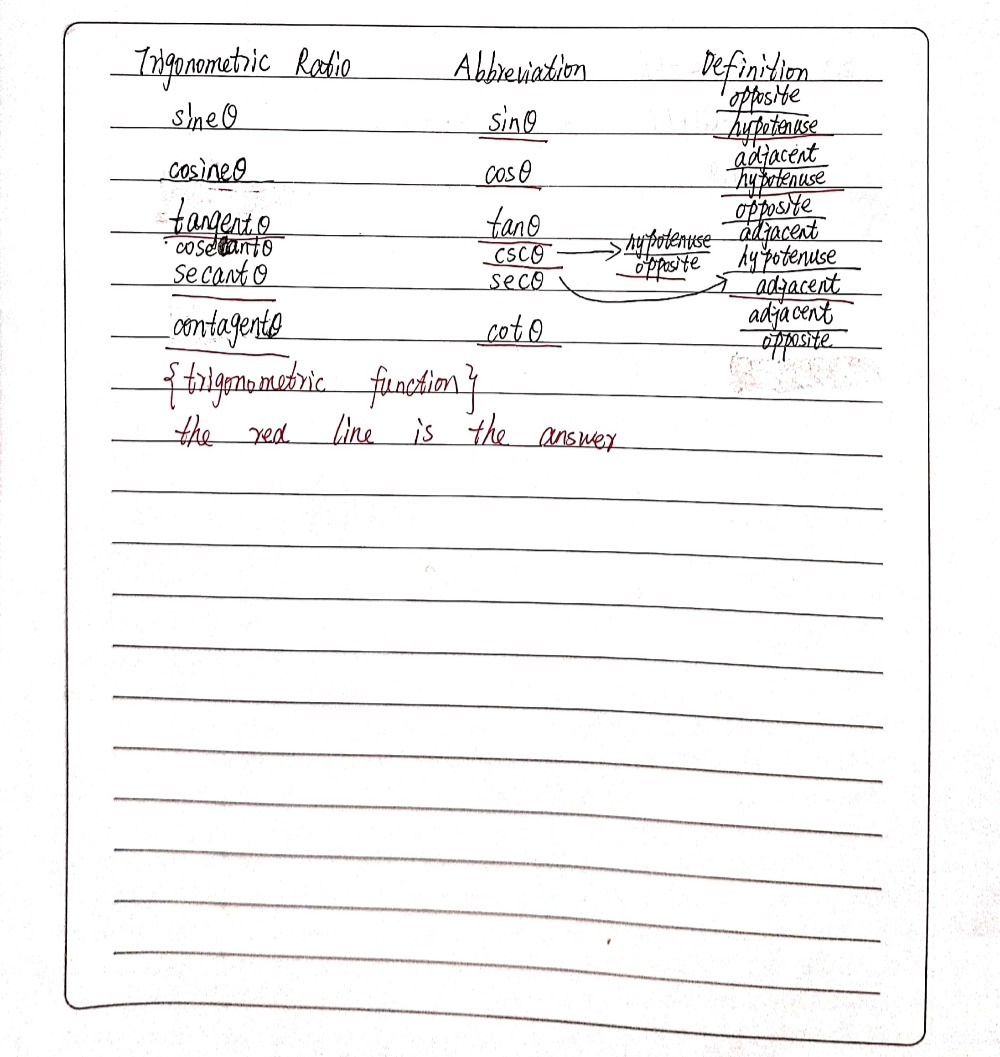 Trigonometric Ratio Abbreviation Definition
sineθ sinθ opposite
hypotenuse
cosineθ cosθ adjacent
hypotenuse
tangentθ tanθ opposite
adjacent
cosecantθ cscθ → hypotenuse
opposite
secantθ secθ hypotenuse
adjacent
contagentθ cotθ adjacent
opposite
{trigonometric function}
the red line is the answer